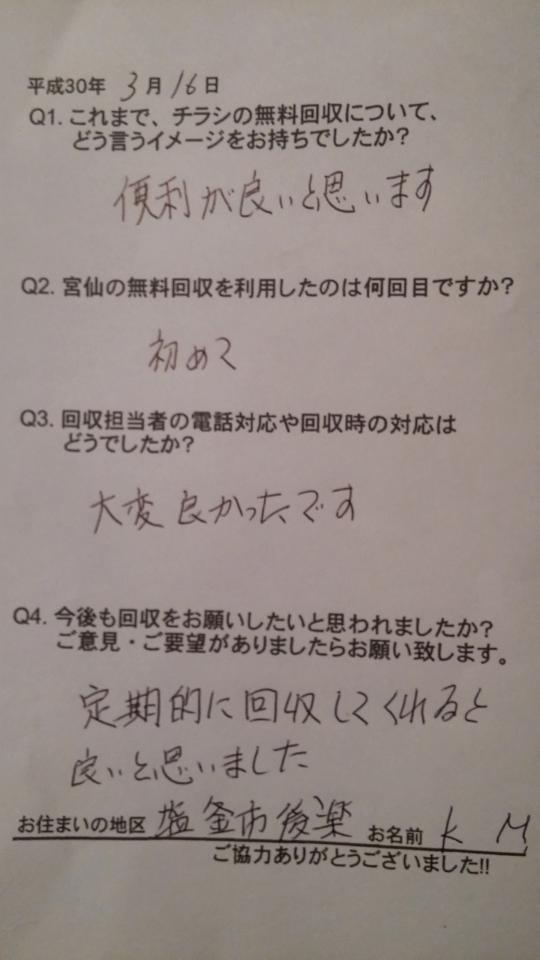 平成30年 3月16日
Q1. これまで、チラシの無料回収について、
どう言うイメージをお持ちでしたか?
便利が良いと思います
Q2. 宮仙の無料回収を利用したのは何回目ですか?
初めて
Q3. 回収担当者の電話対応や回収時の対応は
どうでしたか?
大変良かったです
Q4. 今後も回収をお願いしたいと思われましたか?
ご意見・ご要望がありましたらお願い致します。
定期的に回収してくれると
良いと思いました
お住まいの地区 塩釜市後楽 お名前 K M
ご協力ありがとうございました!!